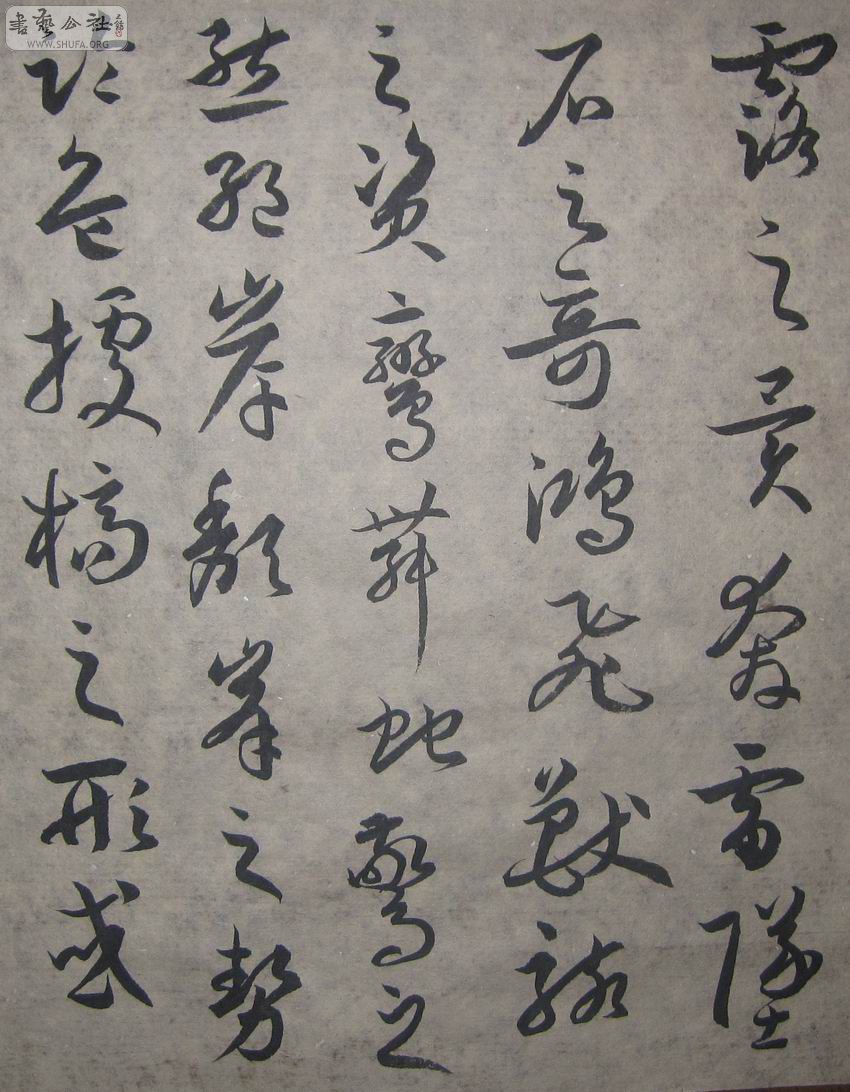 露之異奔雷墜
石之奇鴻飛獸駭
之資鸞舞蛇驚之
態絕岸頹峯之勢
臨危據槁之形或
書藝公社
WWW.SHUFA.ORG